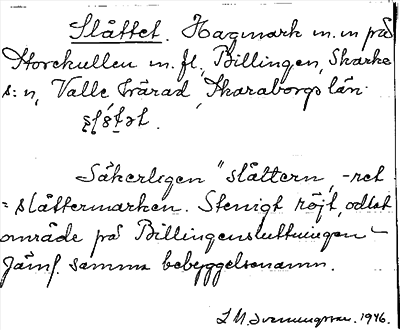 Slåttet. Hagmark m.m på
Storekullen m.fl., Billingen, Skarke
s:n, Valle härad, Skaraborgs län.
Säkerligen "slåttern, -ret
= slåttermarken. Stenigt röjt, odlat
område på Billingensluttningen –
Jämf. samma bebyggelsenamn.
1946.